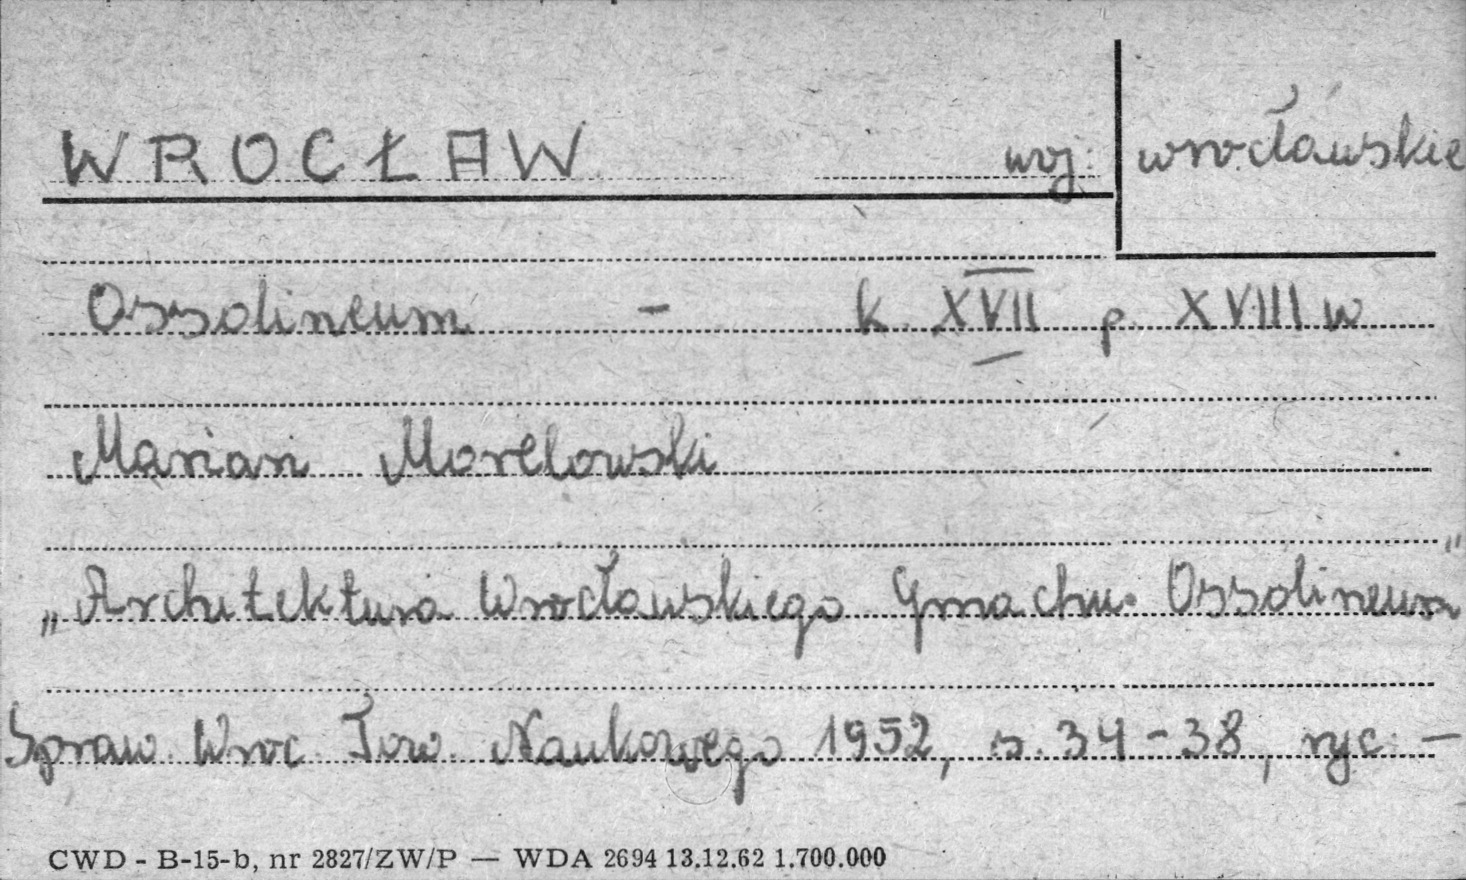 WROCŁAW woj. wrocławskie
Ossolineum - k. XVII p. XVIII w.
Marian Morelowski
„Architektura Wrocławskiego Gmachu Ossolineum"
Spraw. Wroc. Tow. Naukowego 1952, s. 34-38, ryc. -
CWD - B-15-b, nr 2827/ZW/P — WDA 2694 13.12.62 1.700.000